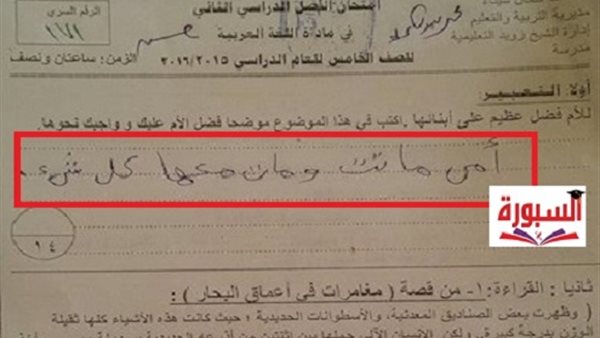 مديرية التربية والتعليم
إدارة الشيخ زويد التعليمية
مدرسة
امتحان الفصل الدراسي الثاني
في مادة اللغة العربية
للصف الخامس للعام الدراسي ٢٠١٦/٢٠١٥
الرقم السري
١١٧٩
الزمن: ساعتان ونصف
أولا: التعبير:
للأم فضل عظيم على أبنائها. اكتب في هذا الموضوع موضحا فضل الأم عليك و واجبك نحوها.
أمى ماتت ومات معها كل شىء
السبورة
١٤
ثانيا : القراءة : ١- من قصة ( مغامرات في أعماق البحار ) :
( وظهرت بعض الصناديق المعدنية، والأسطوانات الحديدية ؛ حيث كانت هذه الأشياء كلها ثقيلة
الوزن بدرجة كبيرة، ولكن الإنسان الآلى حملها